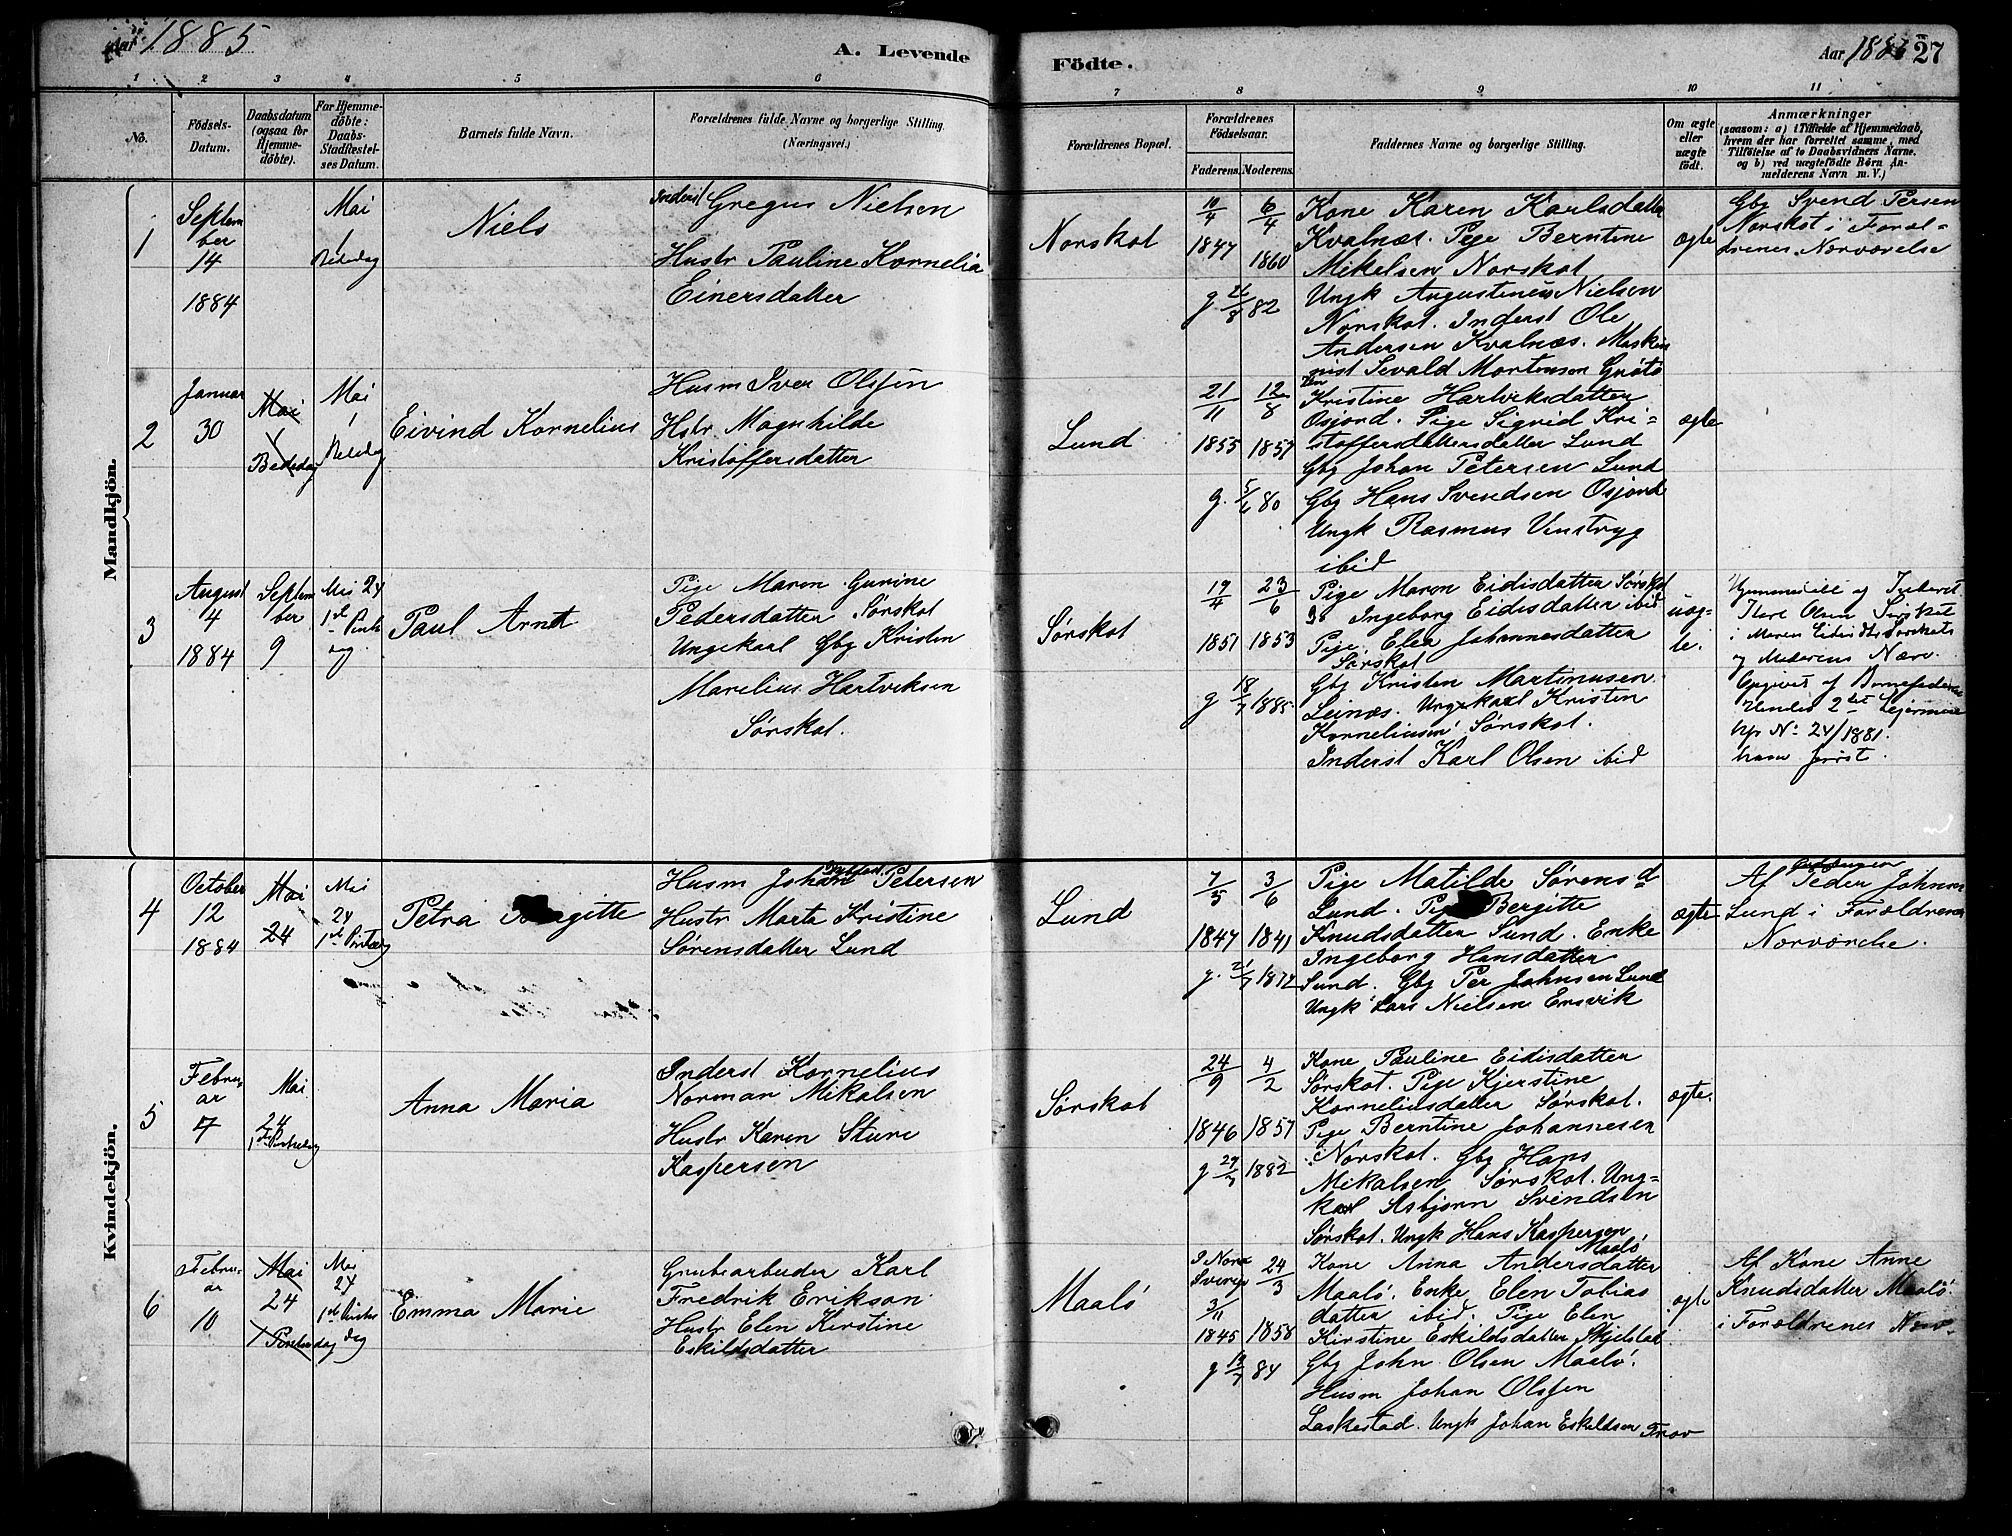 Aar 1885
A. Levende
Födte.
Aar 1885
27
1 2 3 4 5 6 7 8 9 10 11
No.
Födsels-
Datum.
Daabsdatum
(ogsaa for
Hjemme-
döbte).
For Hjemme-
döbte:
Daabs-
Stadfæstel-
ses Datum.
Barnets fulde Navn.
Forældrenes fulde Navne og borgerlige Stilling.
(Næringsvei.)
Forældrenes Bopæl.
Forældrenes
Födselsaar.
Faderens. Moderens.
Faddernes Navne og borgerlige Stilling.
Om ægte
eller
uægte
født.
Anmærkninger
(saasom: a) i Tilfælde af Hjemmedaab,
hvem der har forrettet samme, med
Tilføielse af to Daabsvidners Navne.
og b) ved uægtefödte Börn An-
melderens Navn m. V.)
Mandkjön.
1
Septem
ber
14
1884
Mai
1
Bededag
Niels
Inderst Gregus Nielsen
Hustr Pauline Kornelia
Einersdatter
Norskot
10/4 6/4
1847 1860
g 82
Kone Karen Karlsdatter
Kvalnæs. Pige Berntine
Mikelsen Norskot
Ungk Augustinus Nielsen
Norskot. Inderst Ole
Andersen Kvalnæs. Maski
nist Sevald Mortensen Gröto
ægte
Gbg Svend Persen
Norskot i Foræl-
drenes Nærværelse
2
Januar
30
Mai
1
Bededag
Mai
1
Bededag
Eivind Kornelius
Husm Iver Olssen
Hstr Magnhilde
Kristoffersdatter
Lund
21/11 12/8
1855 1857
g. 5/6 80
Kristine Hartviksdatter
Osjord. Pige Sigrid Kri-
stoffersdattersdatter Lund
Gbg Johan Petersen Lund
Gbg Hans Svendsen Osjord
Ungk Rasmus Vinstryg
ibid
ægte
3
August
4
1884
Septem
ber
9
Mai 24
1ste Pintse
dag
Paul Arnt
Pige Maren Gurine
Pedersdatter Sørskot
Ungekaal Gbg Kristen
Marelius Hartviksen
Sørskot.
Sörskot
19/4 23/6
1851 1853
g 18/7 1885
Pige Maren Eidisdatter Sørskot
do Ingeborg Eidisdatter ibid
Pige. Elen Johannesdatter
Sørskot
Gbg Kristen Martinusen
Leinæs. Ungkarl Kristen
Korneliusen Sørskot.
Inderst Karl Olsen ibid
uæg-
te.
Hjemmedöbt af Inderst
Tore Olsen Sørskot
i Maren Eidisdtr Sørskots
og Moderens Nærv.
Opgivet af Barnefaderen
Hendes 2det Leiermaal
No 24/1881.
hans først.
Kvindekjön.
4
October
12
1884
Mai
24
Mai
24
1ste Pintsedag
Petra Birgitte
Husm Johan Petersen
Hustr Marta Kristine
Sørensdatter Lund
Lund
7/5 3/6
1847 1841
g. 21/7 1872
Pige Matilde Sørensd
Lund. Pige Bergitte
Knudsdatter Sund. Enke
Ingeborg Hansdatter
Sund. Gbg Per Johnsen Lund
Ungk Lars Nielsen Ensvik
ægte
Af Peder Johnsen
Lund i Forældrenes
Nærværelse.
5
Febru-
ar
7
Mai
24
1ste Pintsedag
Anna Maria
Inderst Kornelius
Norman Mikalsen
Hustr Karen Sture
Kaspersen
Sørskot
24/9 4/2
1846 1857
g 29/7 1882
Kone Pauline Eidisdatter
Sørskot. Pige Kjerstine
Korneliusdatter Sørskot.
Pige Berntine Johannesen
Norskot. Gbg Hans
Mikalsen Sørskot. Ung-
karl Asbjørn Svendsen
Sørskot. Ungk Hans Kaspersen
Maalö
ægte.
6
Febru-
ar
10
Mai
24
1 Pintsedag
Mai
24
1ste Pintse
dag
Emma Marie
Grubearbeider Karl
Fredrik Erikson
Hustr Elen Kirstine
Eskildsdatter
Maalö
I Nora
Sverige
3/11
1845
24/3
1858
g 13/7 84
Kone Anna Andersdatter
Maalö. Enke Elen Tobias
datter ibid. Pige Elen
Kirstine Eskildsdatter Skjelstad
Gbg John Olsen Maalö.
Husm Johan Olssen
Laskestad. Ungk Johan Eskildsen Tnov
ægte
Af Kone Anne
Knudsdatter Maalö
i Forældrenes Nærv.